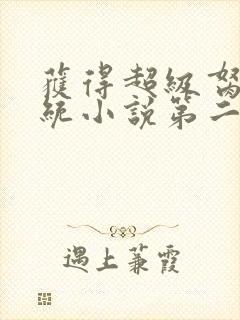 獲得超級
統小說第二
遇上蒹霞